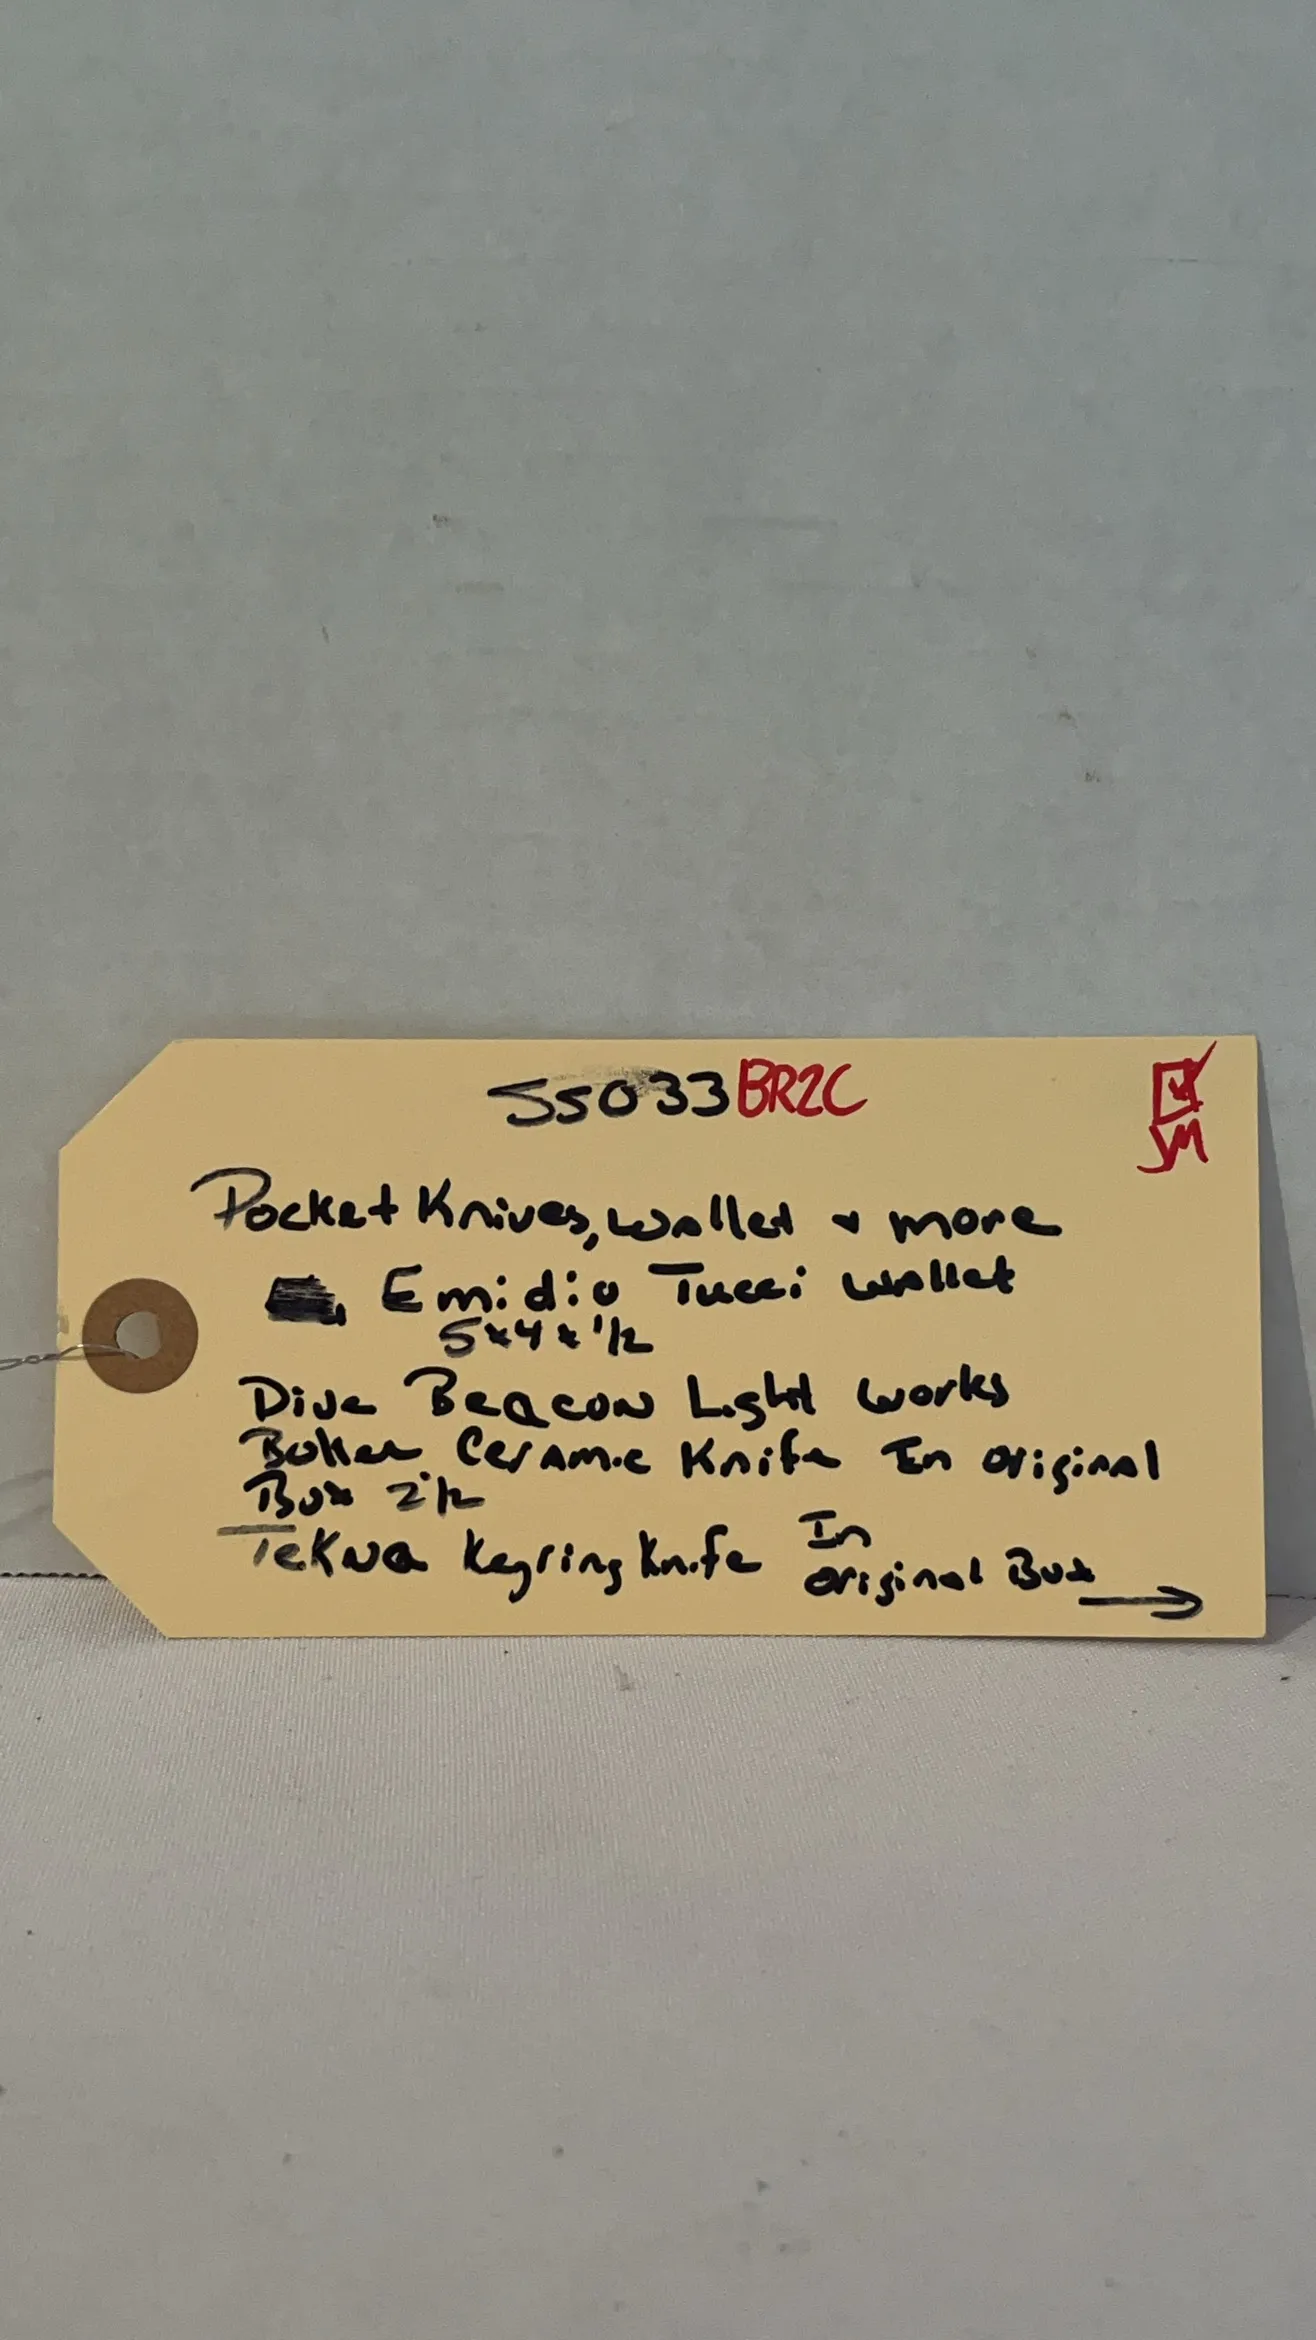 55033BR2C
JM
Pocket Knives, Wallet & more
Emidio Tucci Wallet
5x4x1/2
Dive Beacon Light works
Boker Ceramic Knife In original
Box 2 1/2
Tekna Keyring Knife In
original Box →